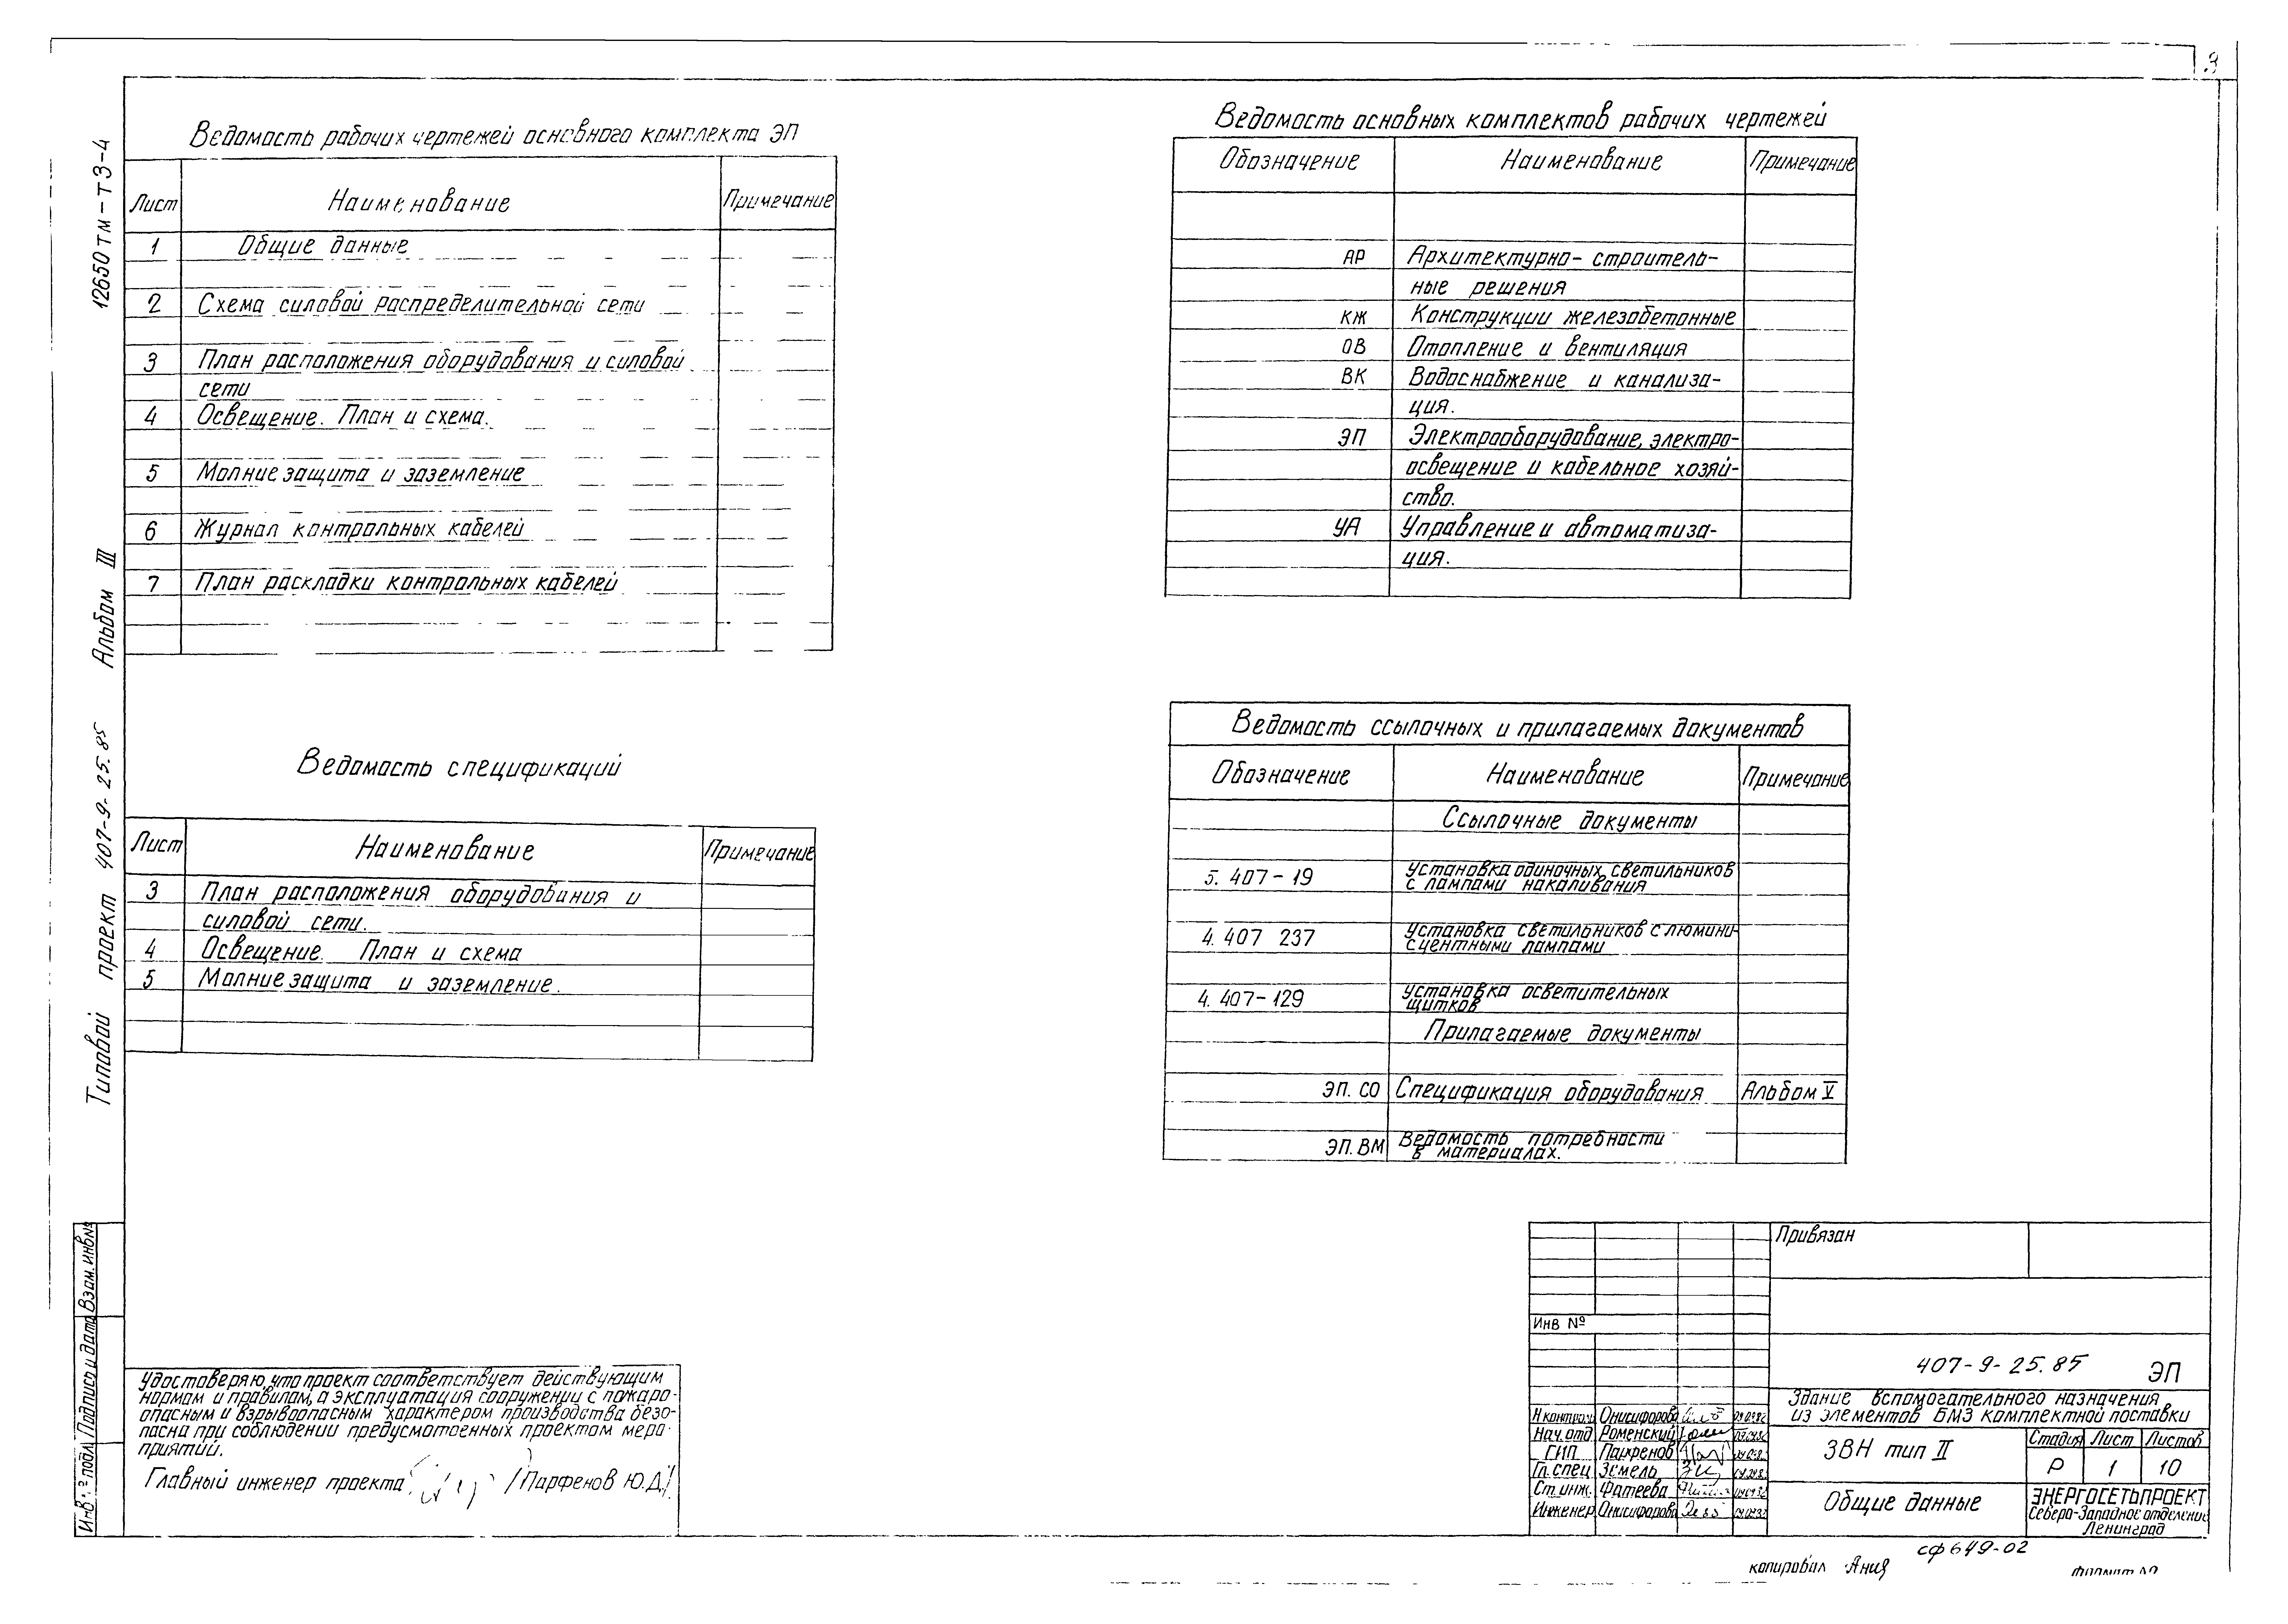 3
12650тм-тЗ-4
Альбом III
Типовой проект 407-9-25.85
Ведомость рабочих чертежей основного комплекта ЭП
Лист Наименование Примечание
1 Общие данные
2 Схема силовой распределительной сети
3 План расположения оборудования и силовой
сети
4 Освещение. План и схема.
5 Молниезащита и заземление
6 Журнал контрольных кабелей
7 План раскладки контрольных кабелей
Ведомость спецификаций
Лист Наименование Примечание
3 План расположения оборудования и
силовой сети.
4 Освещение. План и схема
5 Молниезащита и заземление.
Ведомость основных комплектов рабочих чертежей
Обозначение Наименование Примечание
АР Архитектурно-строитель-
ные решения
КЖ Конструкции железобетонные
ОВ Отопление и вентиляция
ВК Водоснабжение и канализа-
ция.
ЭП Электрооборудование, электро-
освещение и кабельное хозяй-
ство.
УА Управление и автоматиза-
ция.
Ведомость ссылочных и прилагаемых документов
Обозначение Наименование Примечание
Ссылочные документы
5.407-19 Установка одиночных светильников
с лампами накаливания
4.407 237 Установка светильников с люмини-
сцентными лампами
4.407-129 Установка осветительных
щитков
Прилагаемые документы
ЭП.СО Спецификация оборудования Альбом V
ЭП.ВМ Ведомость потребности
в материалах.
Удостоверяю, что проект соответствует действующим
нормам и правилам, а эксплуатация сооружении с пожаро-
опасным и взрывоопасным характером производства безо-
пасна при соблюдении предусмотренных проектом меро-
приятий.
Главный инженер проекта /Парфенов Ю.Д./
Инв.№ подл. Подпись и дата Взам.инв№
Привязан
Инв №
407-9-25.85 ЭП
Здание вспомогательного назначения
из элементов БМЗ комплектной поставки
Н контроль Онисифорова
Нач.отд Роменский
ГИП Парфенов
Гл.спец Земель
Ст.инж. Фатеева
Инженер Онисифорова
ЗВН тип II
Стадия Лист Листов
Р 1 10
Общие данные
ЭНЕРГОСЕТЬПРОЕКТ
Северо-Западное отделение
Ленинград
сф 649-02
копировал Аня
Формат А2